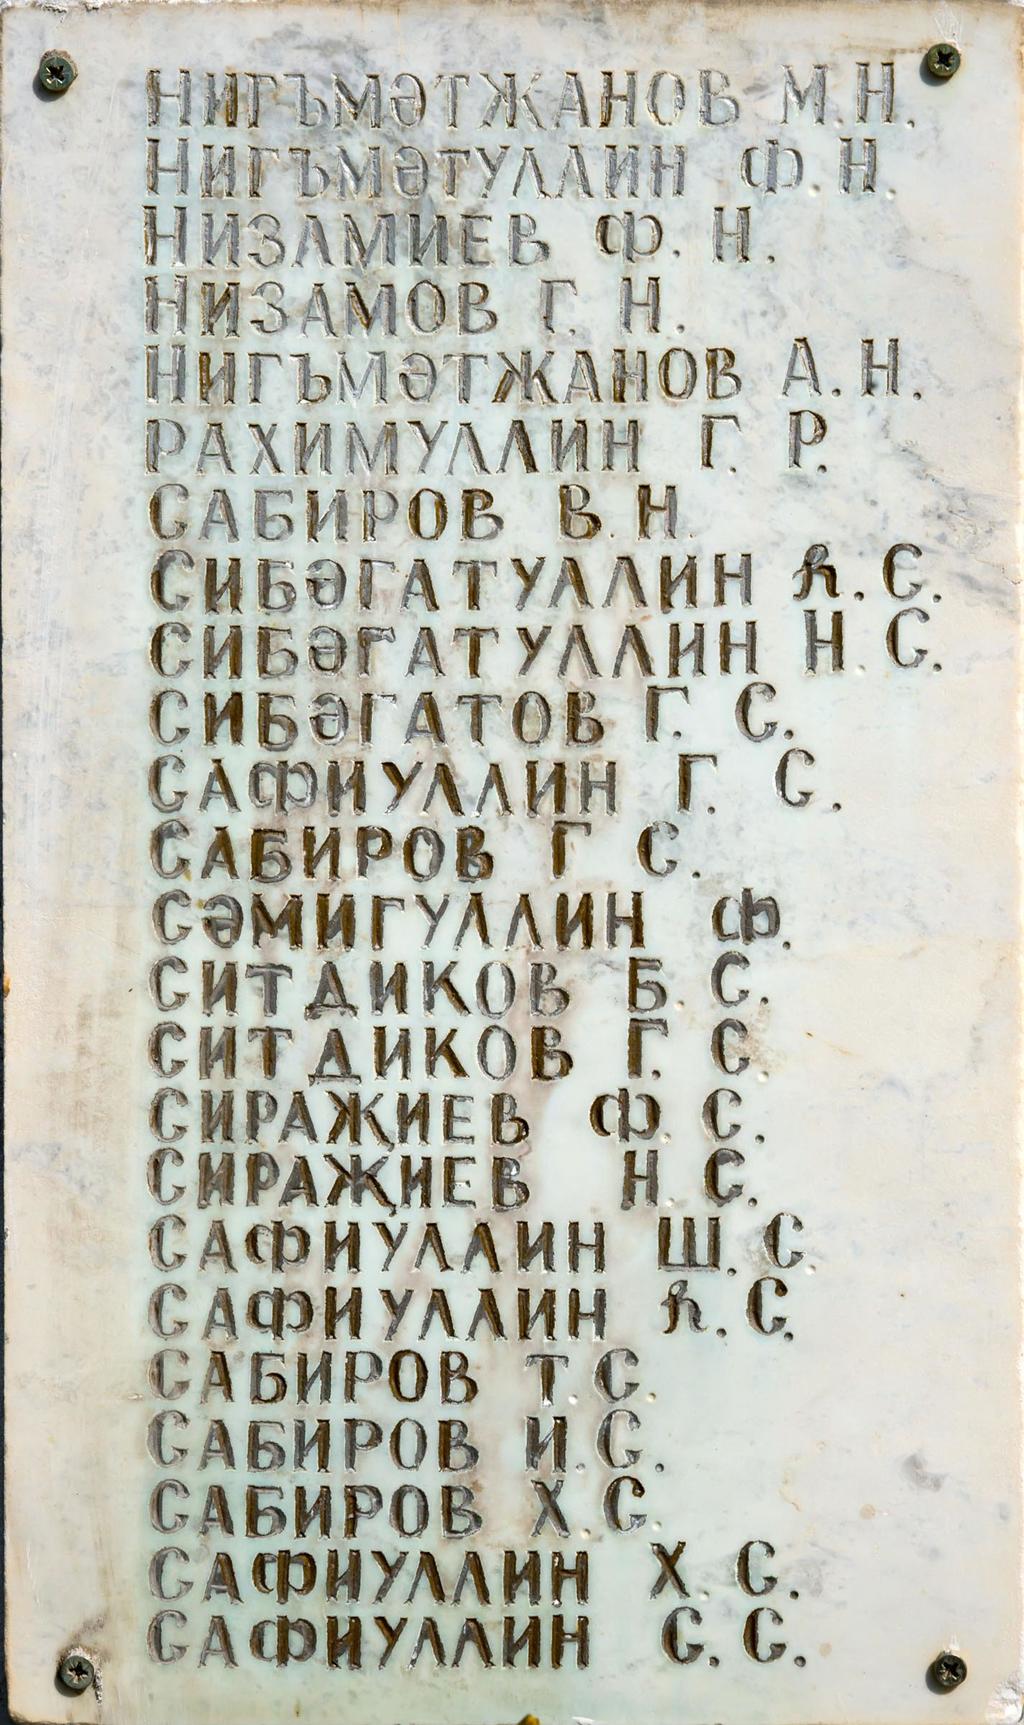 НИГЪМӘТЖАНОВ М.Н.
НИГЪМӘТУЛЛИН Ф.Н.
НИЗАМИЕВ Ф.Н.
НИЗАМОВ Г.Н.
НИГЪМӘТЖАНОВ А.Н.
РАХИМУЛЛИН Г.Р.
САБИРОВ В.Н.
СИБӘГАТУЛЛИН Һ.С.
СИБӘГАТУЛЛИН Н.С.
СИБӘГАТОВ Г.С.
САФИУЛЛИН Г.С.
САБИРОВ Г С.
СӘМИГУЛЛИН Ф.
СИТДИКОВ Б.С.
СИТДИКОВ Г.С.
СИРАҖИЕВ Ф.С.
СИРАҖИЕВ Н.С.
САФИУЛЛИН Ш.С.
САФИУЛЛИН Һ.С.
САБИРОВ Т.С.
САБИРОВ И.С.
САБИРОВ Х.С.
САФИУЛЛИН Х.С.
САФИУЛЛИН С.С.